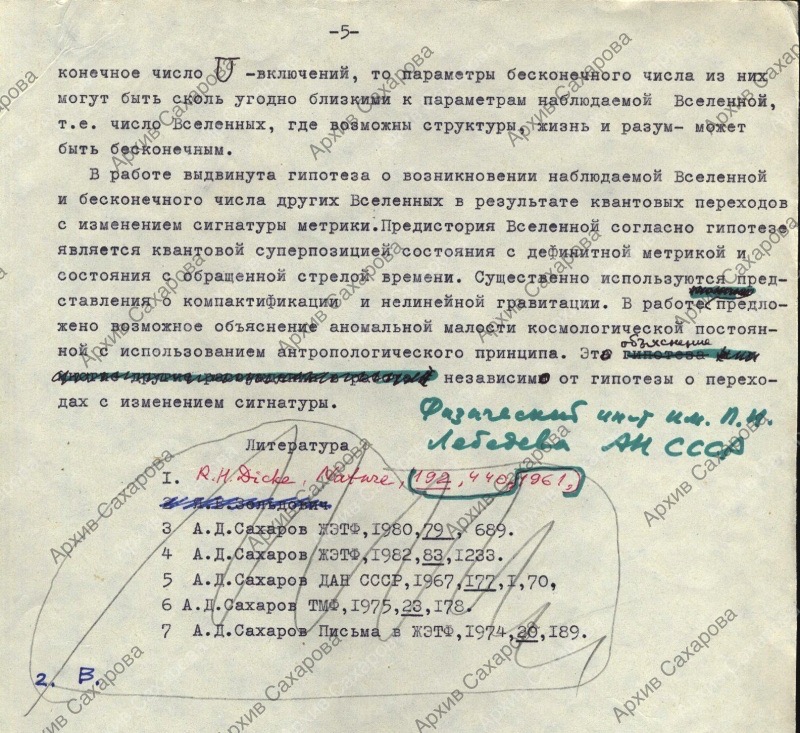 -5-
конечное число U -включений, то параметры бесконечного числа из них
могут быть сколь угодно близкими к параметрам наблюдаемой Вселенной,
т.е. число Вселенных, где возможны структуры, жизнь и разум- может
быть бесконечным.
В работе выдвинута гипотеза о возникновении наблюдаемой Вселенной
и бесконечного числа других Вселенных в результате квантовых переходов
с изменением сигнатуры метрики.Предистория Вселенной согласно гипотезе
является квантовой суперпозицией состояния с дефинитной метрикой и
состояния с обращенной стрелой времени. Существенно используются пред-
ставления о компактификации и нелинейной гравитации. В работе предло-
жено возможное объяснение аномальной малости космологической постоян-
объяснение
ной с использованием антропологического принципа. Это гипотеза
независимо от гипотезы о перехо-
дах с изменением сигнатуры.
Физический ин-т им. П.Н.
Лебедева АН СССР
Литература
I. R.H.Dicke, Nature, 192, 440, 1961,
Зельдович
3 А.Д.Сахаров ЖЭТФ,1980,79, 689.
4 А.Д.Сахаров ЖЭТФ,1982,83,1233.
5 А.Д.Сахаров ДАН СССР,1967,177,I,70,
6 А.Д.Сахаров ТМФ,1975,23,178.
7 А.Д.Сахаров Письма в ЖЭТФ,1974,20,189.
2. В.
Архив Сахарова